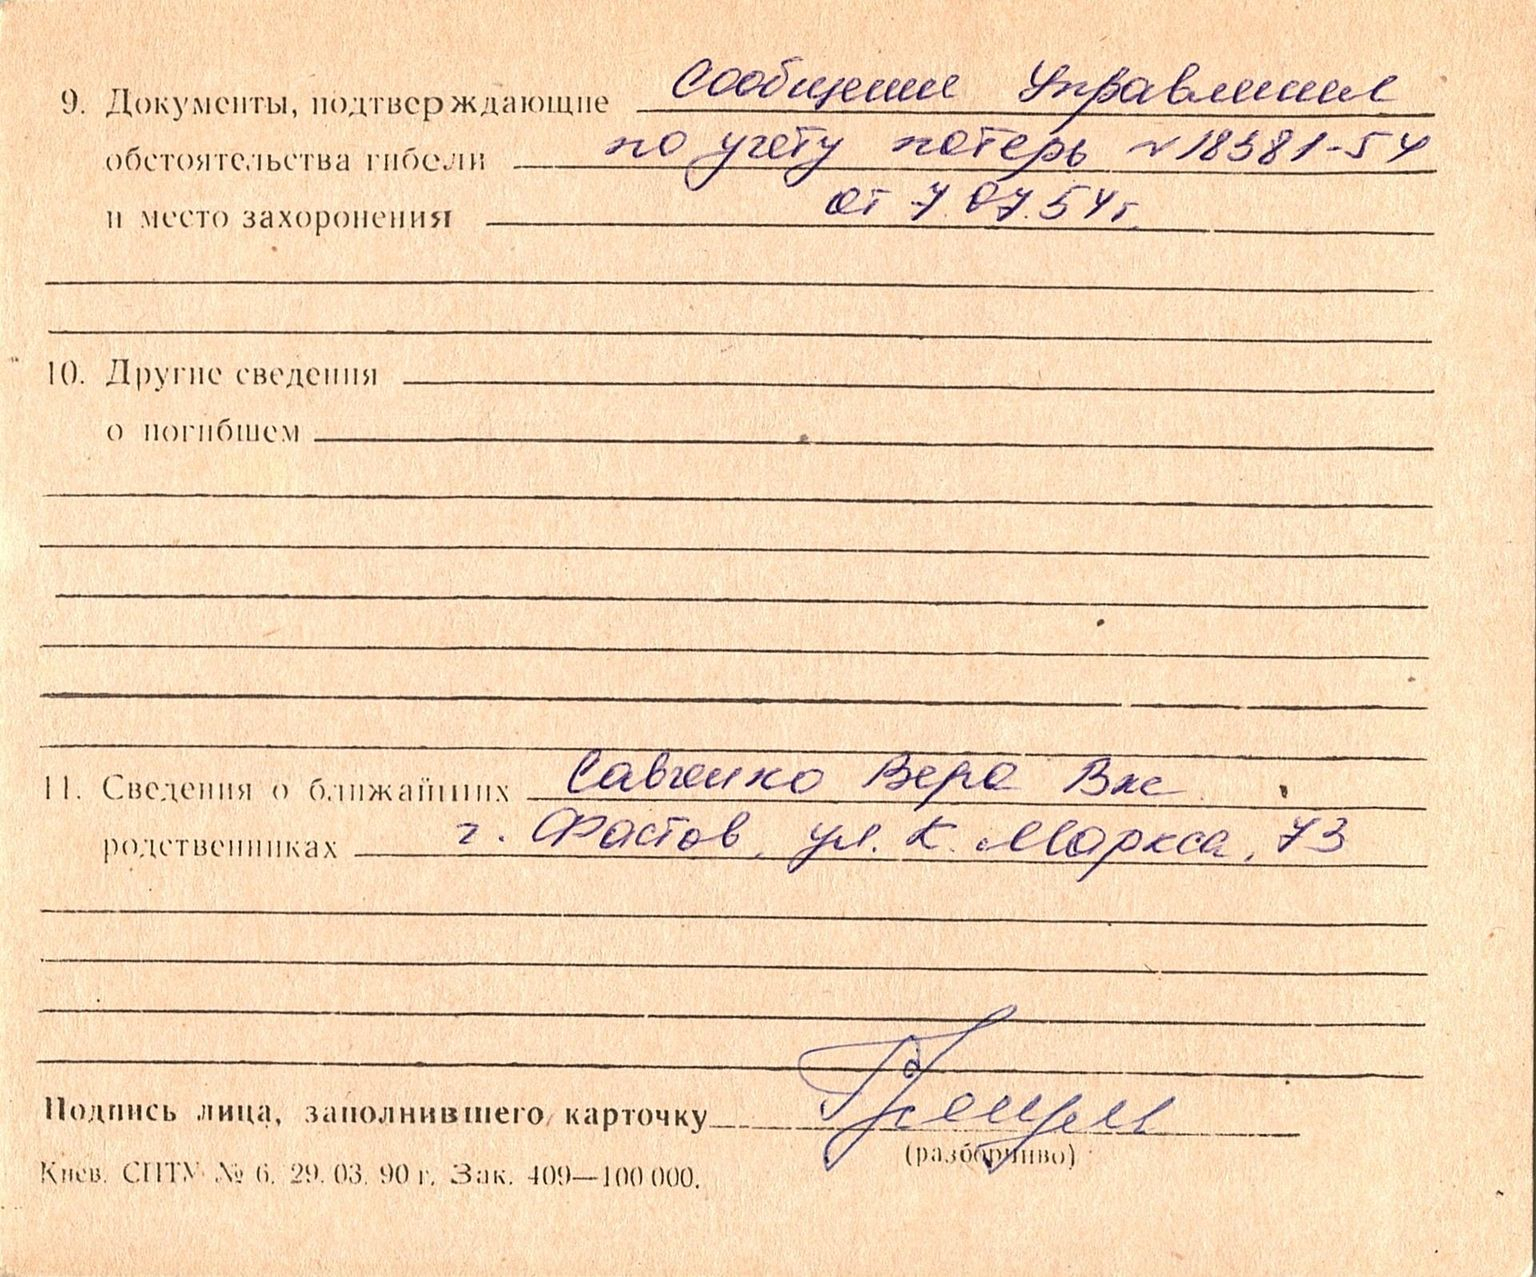 9. Документы, подтверждающие Сообщение Управления
обстоятельства гибели по учету потерь № 18381-54
и место захоронения от 7.07.54г.
10. Другие сведения
о погибшем
11. Сведения о ближайших Савченко Вера Вас
родственниках г. Фастов, ул. К. Маркса, 73
Подпись лица, заполнившего карточку
(разборчиво)
Киев. СПТУ № 6. 29. 03. 90 г. Зак. 409—100 000.